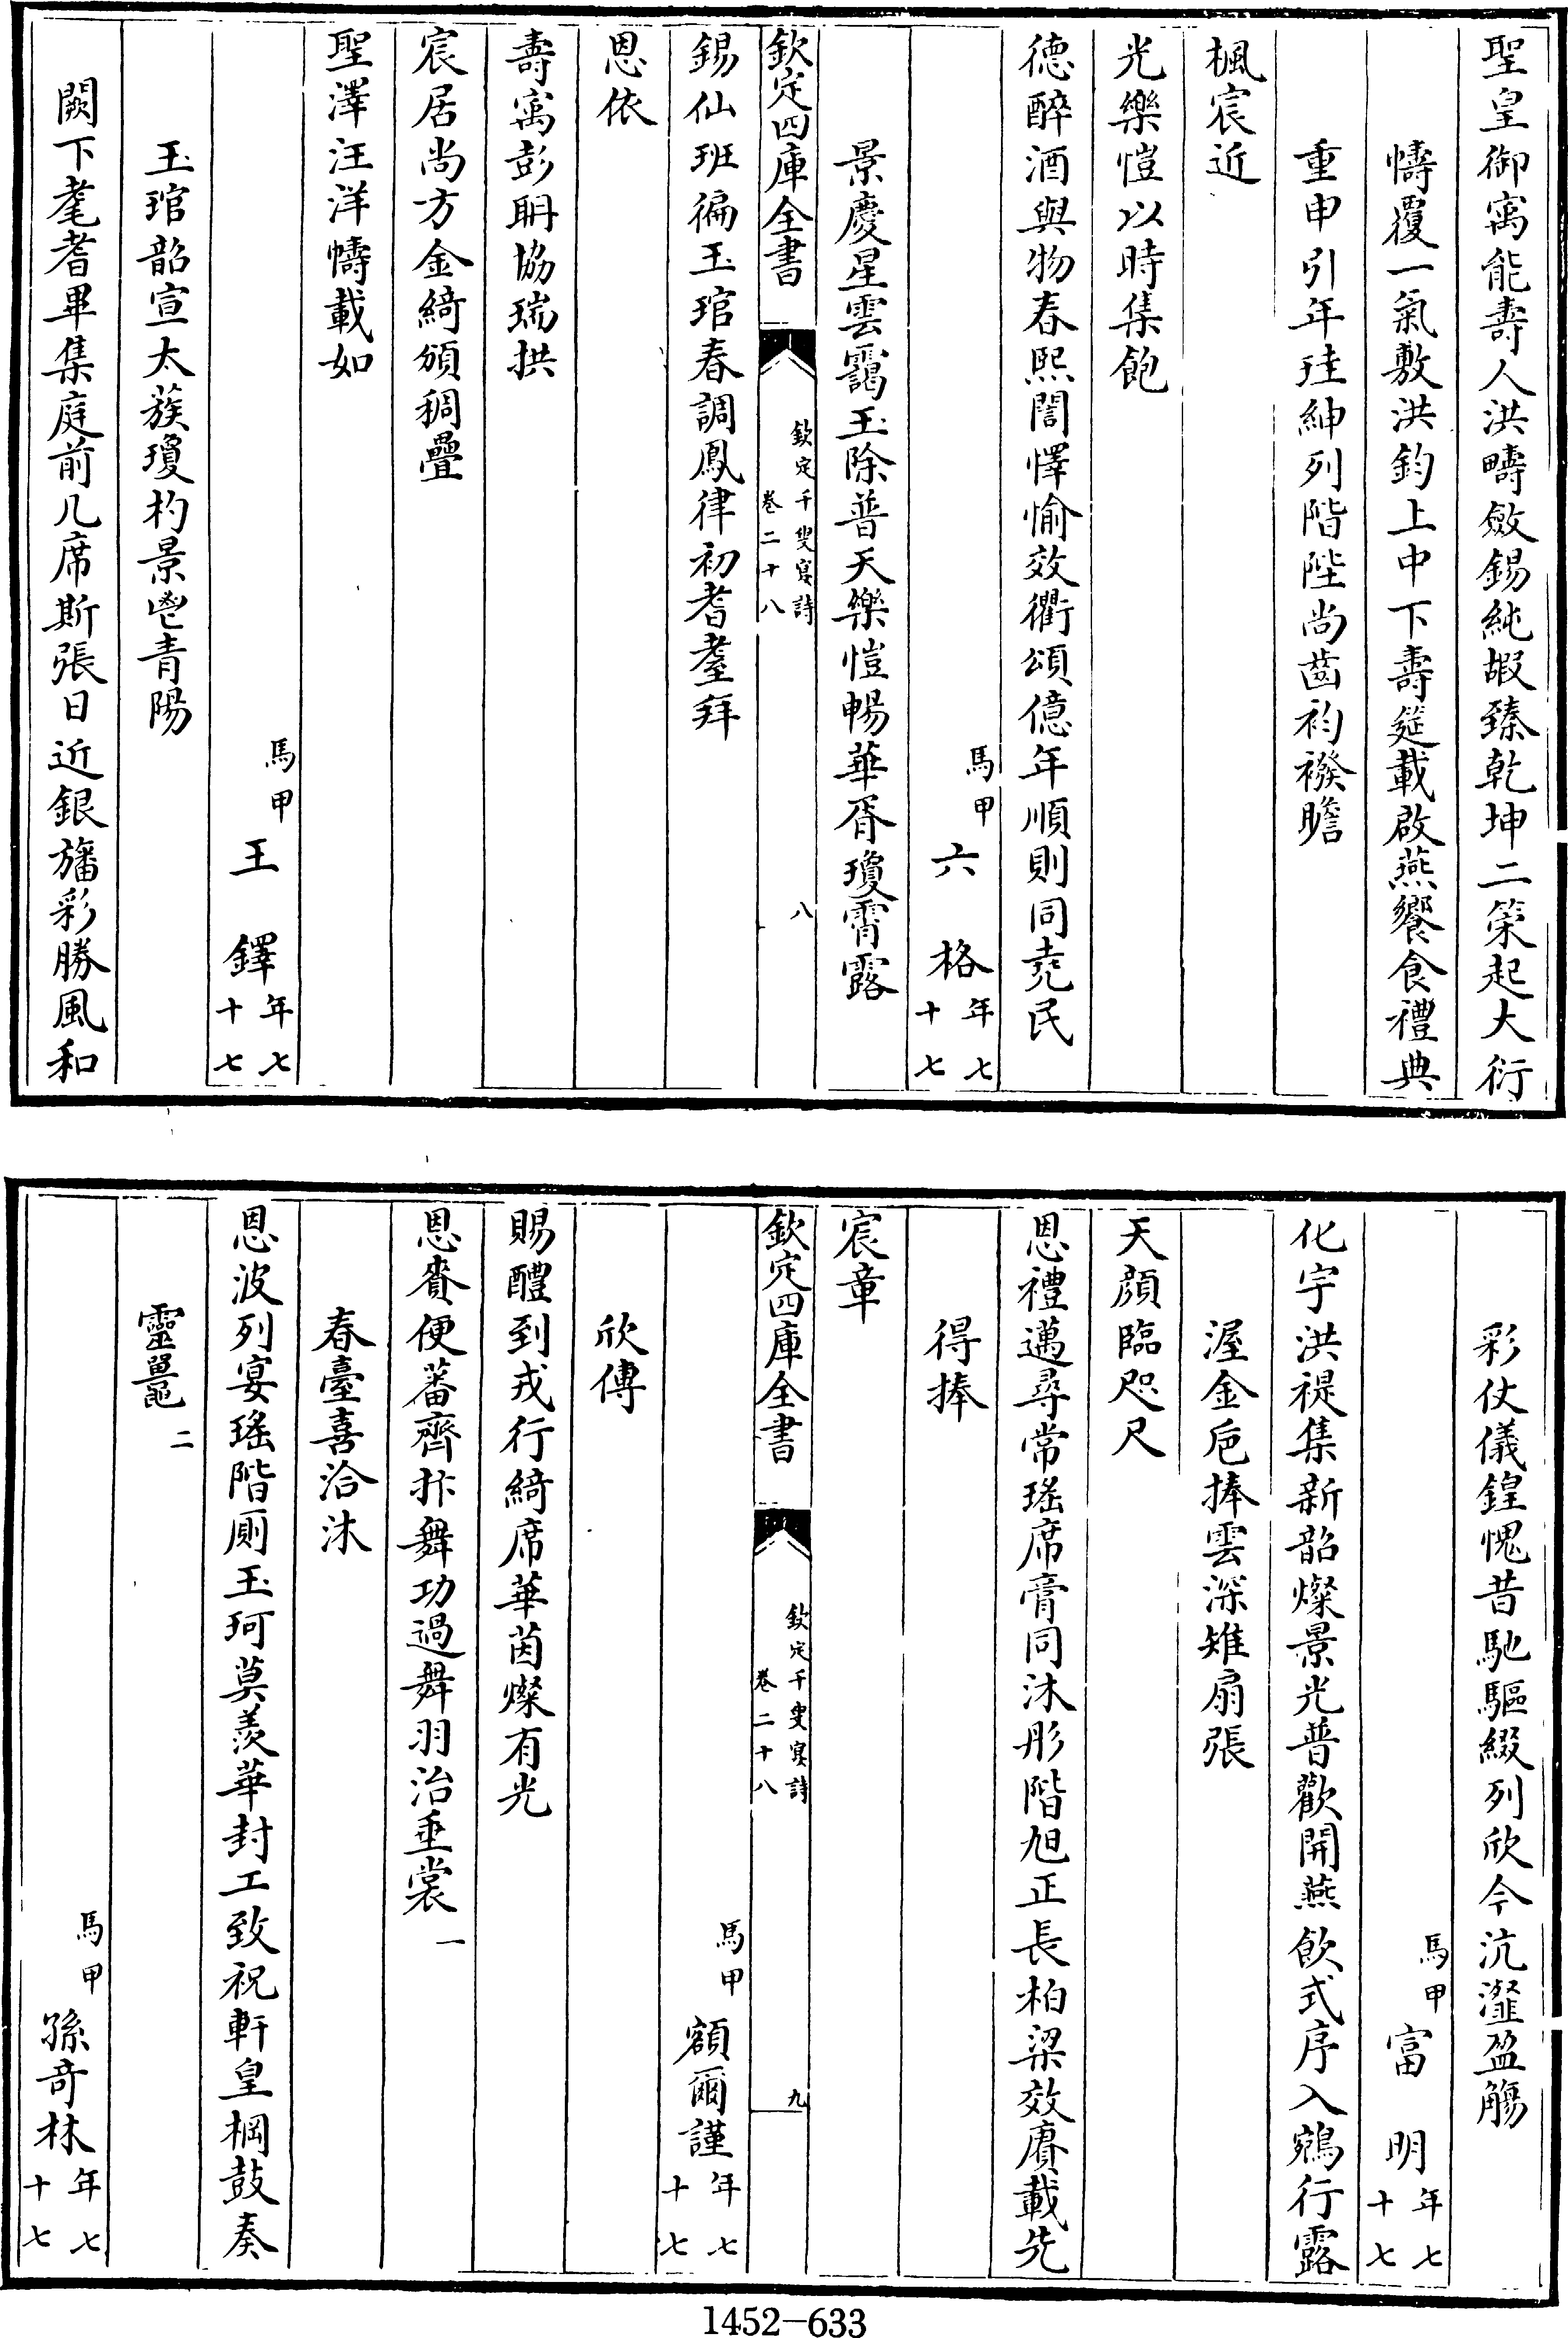 聖皇御㝢能壽人洪疇斂錫純嘏臻乾坤二策起大衍
幬覆一氣敷洪鈞上中下壽筵載啟燕饗食禮典
重申引年珪紳列階陛尚齒袀襏瞻
楓宸近
光樂愷以時集飽
德醉酒與物春熙誾懌愉效衢頌億年順則同堯民
馬甲六格年七十七
景慶星雲靄玉除普天樂愷暢華胥瓊霄露
欽定四庫全書
欽定千叟宴詩
卷二十八
八
錫仙班徧玉琯春調鳳律初耆耋拜
恩依
壽㝢彭聃協瑞拱
宸居尚方金綺頒稠疊
聖澤汪洋幬載如
馬甲王鐸年七十七
玉琯韶宣太蔟瓊杓景鬯青陽
闕下耄耆畢集庭前几席斯張日近銀旛彩勝風和
彩仗儀鍠愧昔馳驅綴列欣今沆瀣盈觴
馬甲富明年七十七
化宇洪禔集新韶燦景光普歡開燕飲式序入鵷行露
渥金卮捧雲深雉扇張
天顔臨咫尺
恩禮邁尋常瑤席膏同沐彤階旭正長柏梁效賡載先
得捧
宸章
欽定四庫全書
欽定千叟宴詩
卷二十八
九
馬甲額爾謹年七十七
欣傳
賜醴到戎行綺席華茵燦有光
恩賚便蕃齊抃舞功過舞羽治垂裳一
春臺喜洽沐
恩波列宴瑤階厠玉珂莫羨華封工致祝軒皇棡鼓奏
靈鼉二
馬甲孫奇林年七十七
1452-633